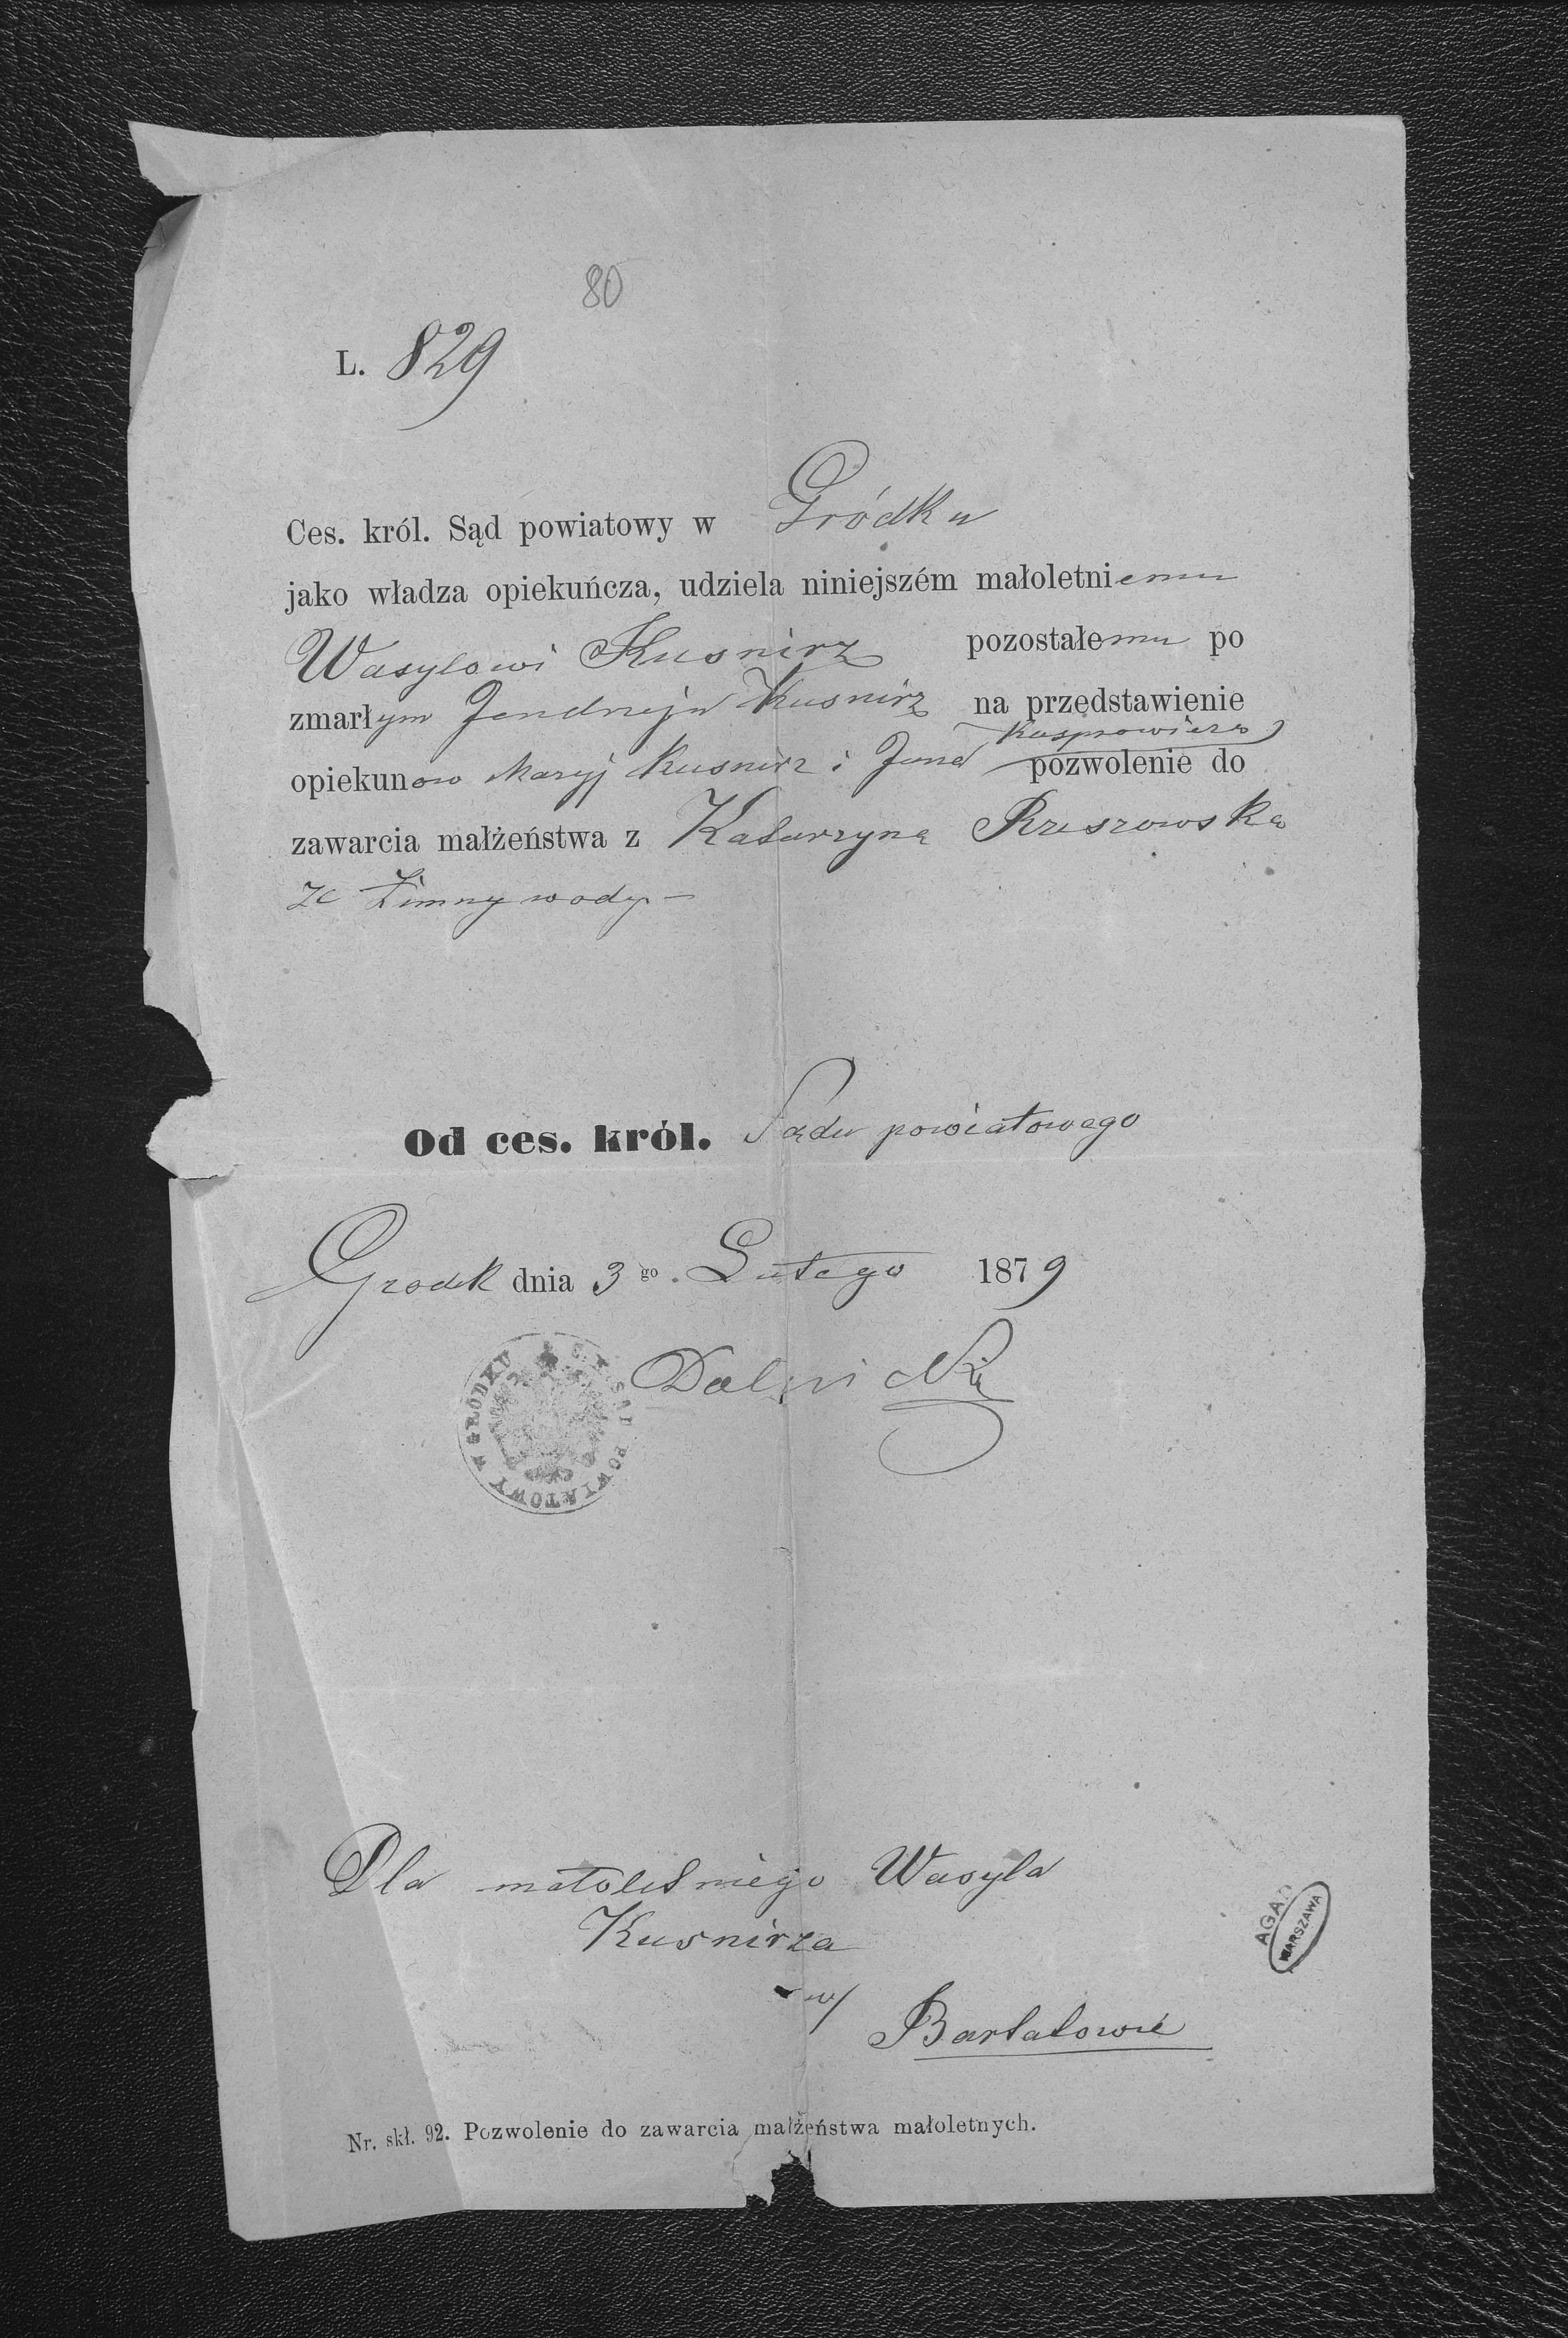 80
L. 829
Ces. król. Sąd powiatowy w Gródku
jako władza opiekuńcza, udziela niniejszém małoletniemu
Wasylowi Kusnirz pozostałemu po
zmarłym Jendrzeju Kusnirz na przedstawienie
Kasprowicza
opiekunow Maryj Kusnirz i Jana pozwolenie do
zawarcia małżeństwa z Katarzyną Rzeszowską
ze Zimny wody –
Od ces. król. Sądu powiatowego
Grodek dnia 3 go. Lutego 1879
C. K. SĄD POWIATOWY W GRÓDKU
Dla małoletniego Wasyla
Kusnirza
w/
Bartatowie
AGAD
WARSZAWA
Nr. skł. 92. Pozwolenie do zawarcia małżeństwa małoletnych.